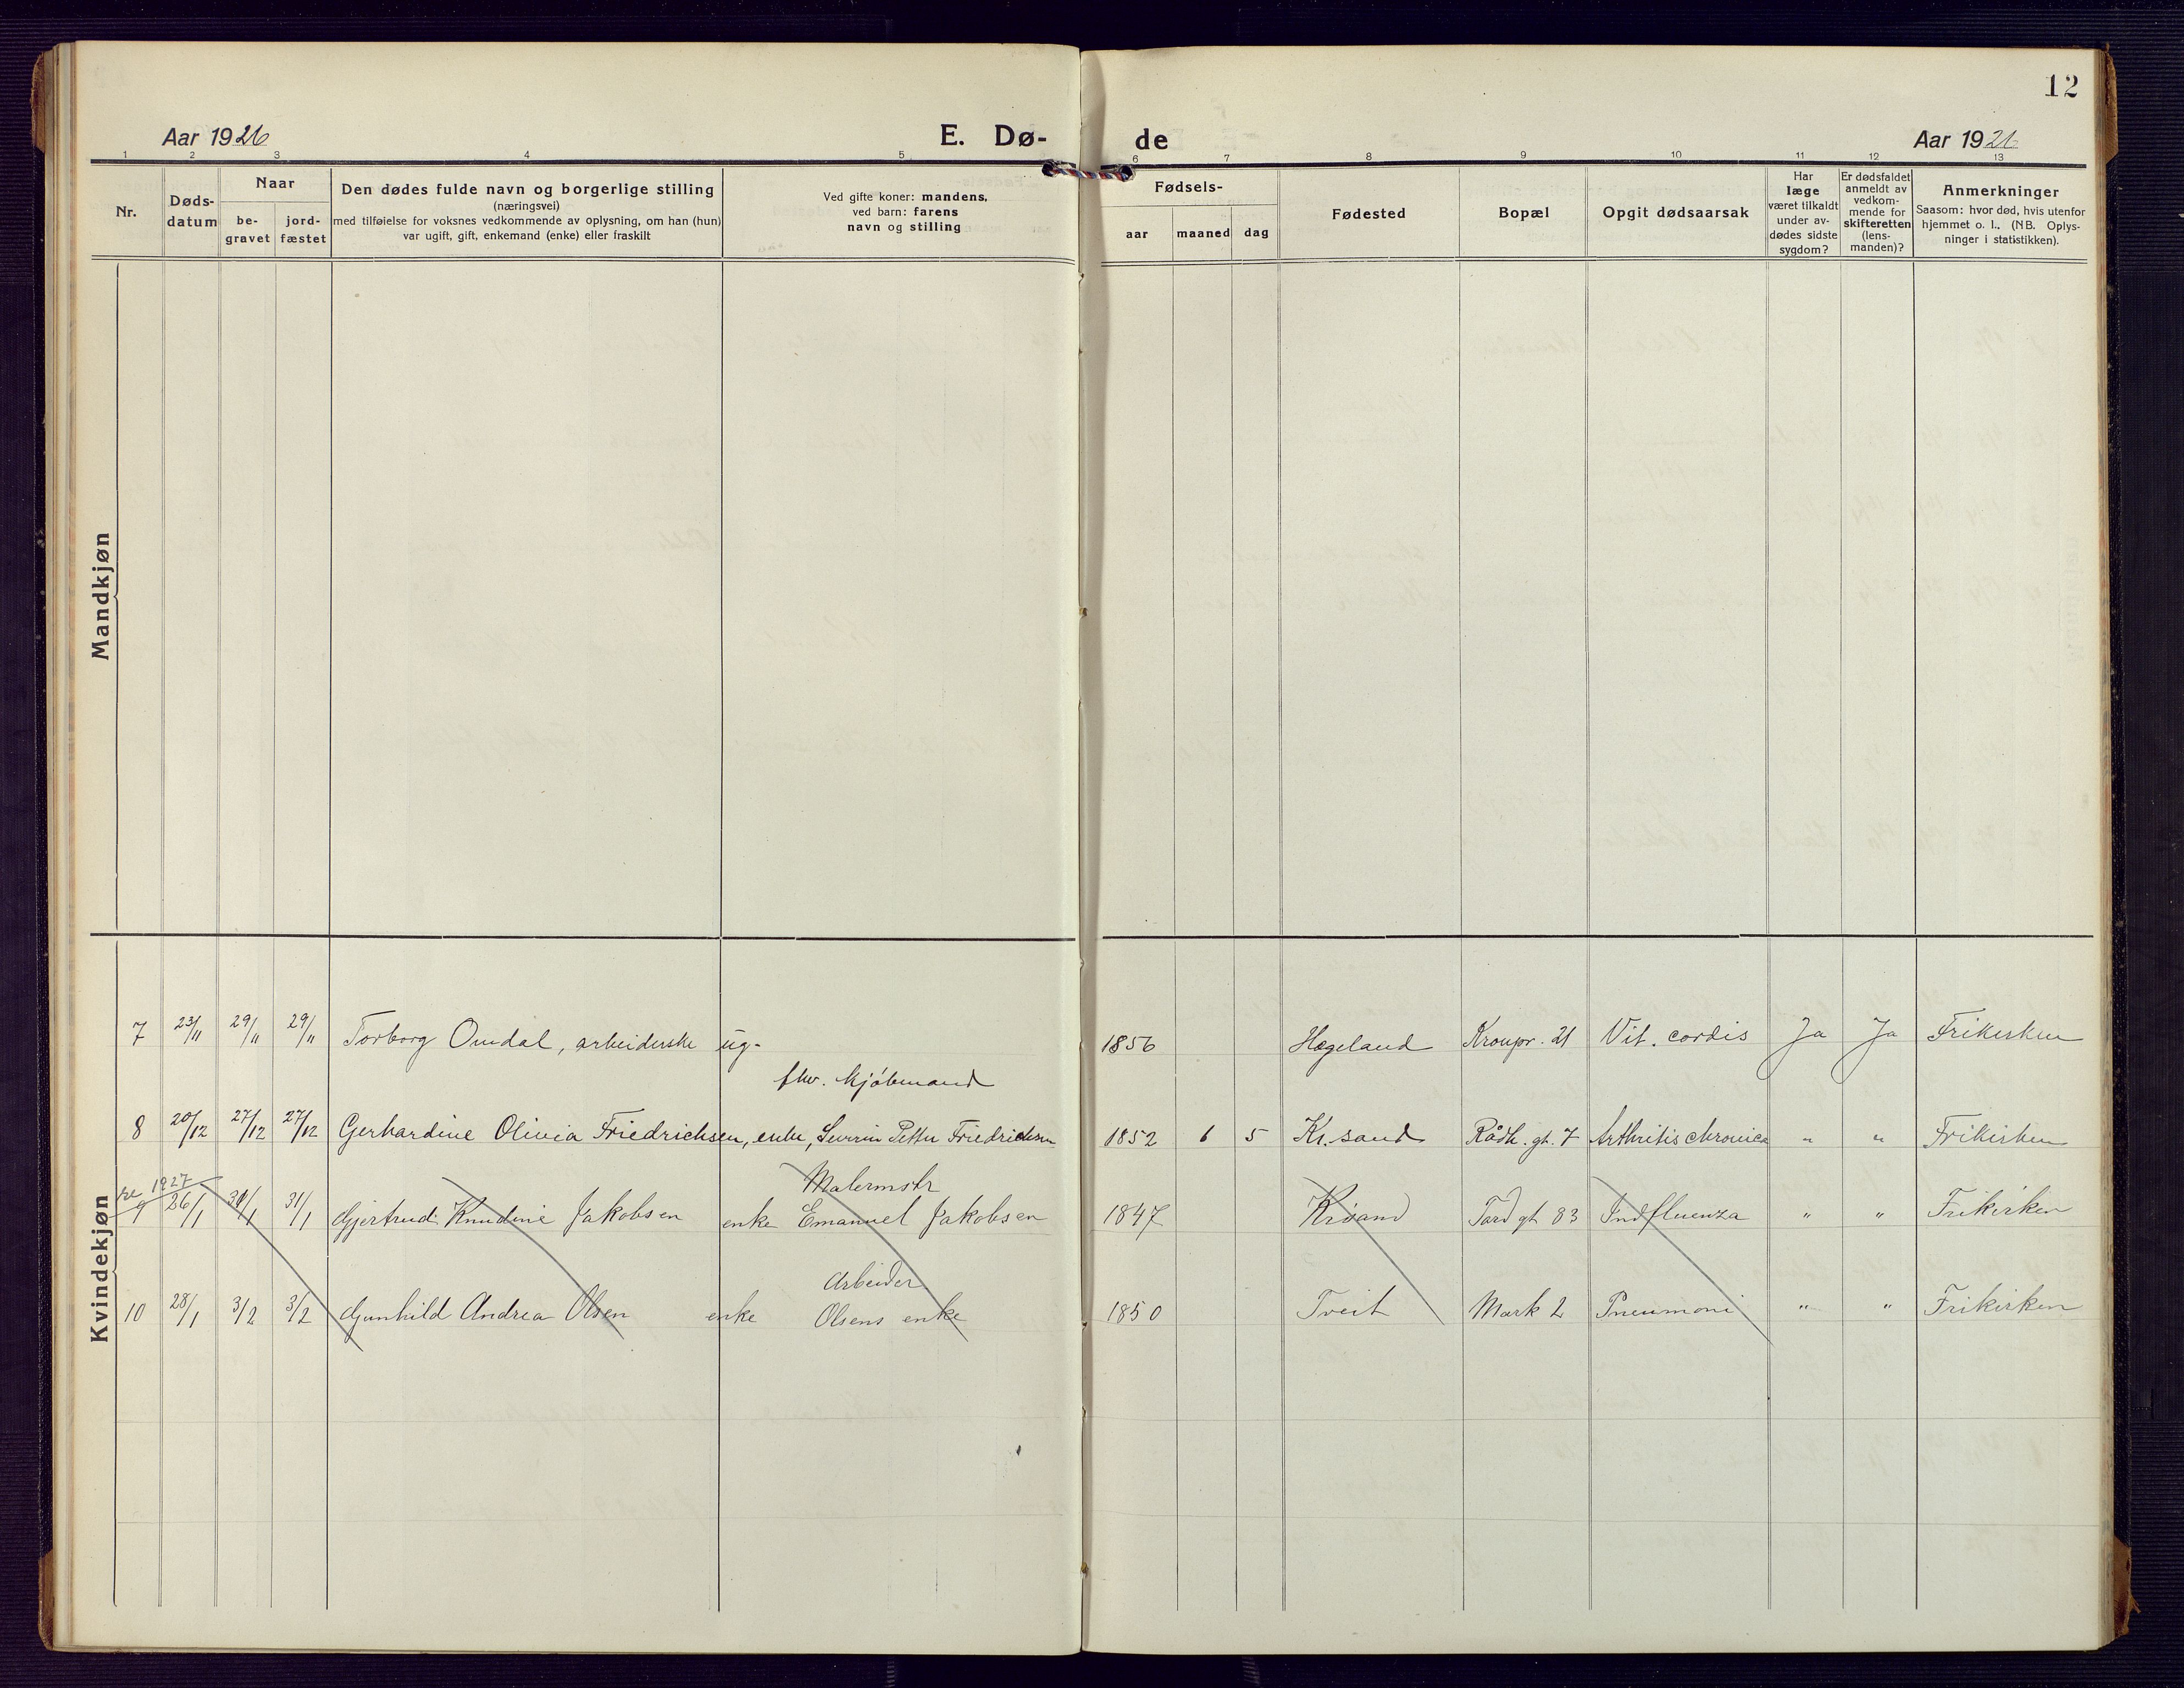 12
Aar 1926 E. Dø- de Aar 1926
1 2 3 4 5 6 7 8 9 10 11 12 13
Nr.
Døds-
datum
Naar
be-
gravet
jord-
fæstet
Den dødes fulde navn og borgerlige stilling
(næringsvei)
med tilføielse for voksnes vedkommende av oplysning, om han (hun)
var ugift, gift, enkemand (enke) eller fraskilt
Ved gifte koner: mandens,
ved barn: farens
navn og stilling
Fødsels-
aar maaned dag
Fødested
Bopæl
Opgit dødsaarsak
Har
læge
været tilkaldt
under av-
dødes sidste
sygdom?
Er dødsfaldet
anmeldt av
vedkom-
mende for
skifteretten
(lens-
manden)?
Anmerkninger
Saasom: hvor død, hvis utenfor
hjemmet o. l., (NB. Oplys-
ninger i statistikken).
Mandkjøn
Kvindekjøn
7 23/11 29/11 29/11 Torborg Omdal, arbeiderske ug. 1856 Hægeland Kronpr. 21 Vit. cordis Ja Ja Frikirken
fhv. kjøbmand
8 20/12 27/12 27/12 Gerhardine Olivia Friedrichsen, enke, Severin Petter Friedrichsen 1852 6 5 Kr.sand Rådh. gt. 7 Arthritis chronica " " Frikirken
1927 Malermstr
9 26/1 31/1 31/1 Gjertrud Knudine Jakobsen enke Emanuel Jakobsen 1847 Krsand Tord gt 83 Indfluenza " " Frikirken
Arbeider
10 28/1 3/2 3/2 Gunhild Andrea Olsen enke Olsens enke 1850 Tveit Mark 2 Pneumoni " " Frikirken